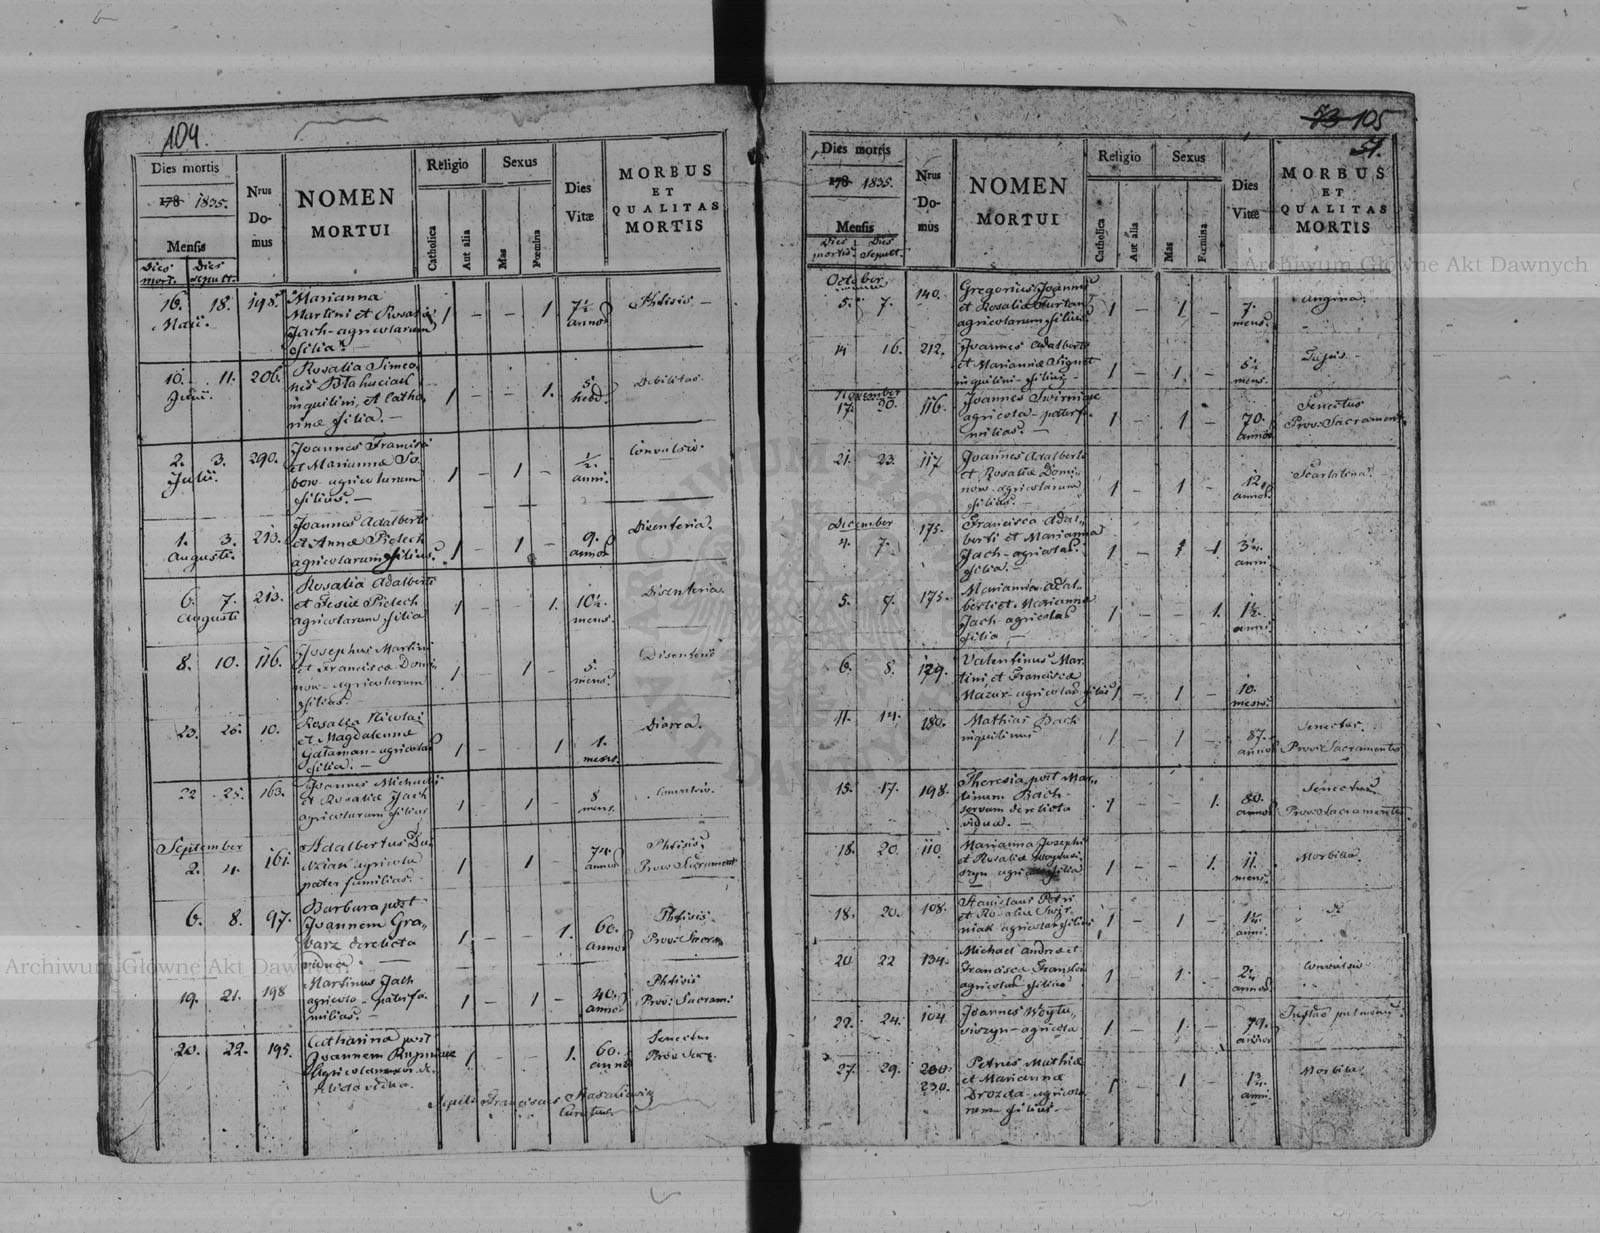 104.
Dies mortis
178 1835.
Mensis
Dies mort. Dies sepult.
Nrus Domus
NOMEN
MORTUI
Religio
Catholica
Aut alia
Sexus
Mas
Fœmina
Dies
Vitæ
MORBUS
ET
QUALITAS
MORTIS
16. 18. 198. Marianna 1 – – 1 7½ Phtisis –
Maii. Martini et Rosaliæ annor
Jach agricolarum
filia. –
10. 11. 206. Rosalia Simeo- 1 – – 1. 5 Debilitas.
Junii. nis
inquilini, et Catha- hebd.
rinæ filia. –
2. 3. 290. Joannes Francisci 1 – 1 – ½. Convulsio.
Julii. et Mariannæ So- anni.
bow agricolarum
filius. –
1. 3. 213. Joannes Adalberti 1 – 1 – 9. Disenteria.
Augusti. et Annæ Pielech annor
agricolarum filius.
6. 7. 213. Rosalia Adalberti 1 – – 1. 10½ Disenteria.
Augusti et Pielech mens.
agricolarum filia
8. 10. 116. Josephus Martini 1 – 1 – 5. Disenteria
et Franciscæ Domi- mens.
now agricolarum
filius.
23. 25. 10. Rosalia Nicolai 1 – 1 1. Diarea.
et Magdalennæ mens.
Gataman agricolar
filia. –
22 25. 163. Joannes Michaelis 1 1 – 8 Convulsio.
et Rosaliæ Jach mens.
agricolarum filius
September
2. 4. 161. Adalbertus Du- 1 1 – 74. Phtisis.
dziak agricola annor Prov: Sacrament
pater familias. –
6. 8. 97. Barbara post 1. – – 1. 60. Phtisis.
Joannem Gra- annor Prov: Sacra
barz derelicta
vidua. –
19. 21. 198 Martinus Jach 1 – 1 – 40. Phtisis
agricola – paterfa- annor Prov: Sacram:
milias. –
20. 22. 195. Catharina post 1 – – 1. 60. Senectus
Joannem annor Prov:
Agricolam de-
licta vidua.
Franciscus
73 105
51.
Dies mortis
178 1835.
Mensis
Dies mortis. Dies Sepult.
Nrus Domus
NOMEN
MORTUI
Religio
Catholica
Aut alia
Sexus
Mas
Fœmina
Dies
Vitæ
MORBUS
ET
QUALITAS
MORTIS
October
5. 7. 140. Gregorius Joannis 1 – 1 – 7. Angina.
et Rosaliæ Furtan mens.
agricolarum filius.
14 16. 212. Joannes Adalberti 1 – 1 – 5½
et Mariannæ Signet mens.
inquilini filius –
November
17. 20. 116. Joannes 1 – 1 – 70. Senectus
agricola – paterfa- annor Prov: Sacrament.
milias. –
21. 23. 117 Joannes Adalberti 1 – 1 – 12 Scarlatina.
et Rosaliæ Domi- annor.
now agricolarum
filius. –
December
4. 7. 175. Francisca Adal- 1 – 1 1 3¼.
berti et Marianna anni.
Jach – agricolar.
filia. –
5. 7. 175. Marianna Adal- 1 – – 1. 1½.
berti et Marianna anni.
Jach agricolar
filia –
6. 8. 129. Valentinus Mar- 1 – 1 – 10.
tini et Franciscæ mens.
Mazur agricolar filius
11. 14. 180. Mathias Bach 1 – 1 – 87. Senectus.
inquilinus annor Prov: Sacramento
15. 17. 198. Theresia post Mar- 1 – – 1. 80. Senectus
tinum Bach annor Prov: Sacramento.
servum derelicta
vidua. –
18. 20. 110 Marianna Josephi 1 – – 1. 11. Morbilla.
et Rosaliæ mens.
szyn agri filia
18. 20. 108. Stanislaus Petri 1 – 1 – 1½
et Rosaliæ Świr- anni.
niak agricolar filius
20 22 134. Michael Andreæ et 1 – 1 – 2¼ Convulsio
Franciscæ annor.
agricolar filius
22. 24. 104 Joannes Woytu- 1 – 1 – 79.
siszyn – agricola annor
27. 29. 200 Petrus Mathiæ 1 – 1 – 1¾. Morbilla.
230. et Mariannæ anni.
Drozda agricola-
rum filius. –
Archiwum Główne Akt Dawnych
Archiwum Główne Akt Dawnych